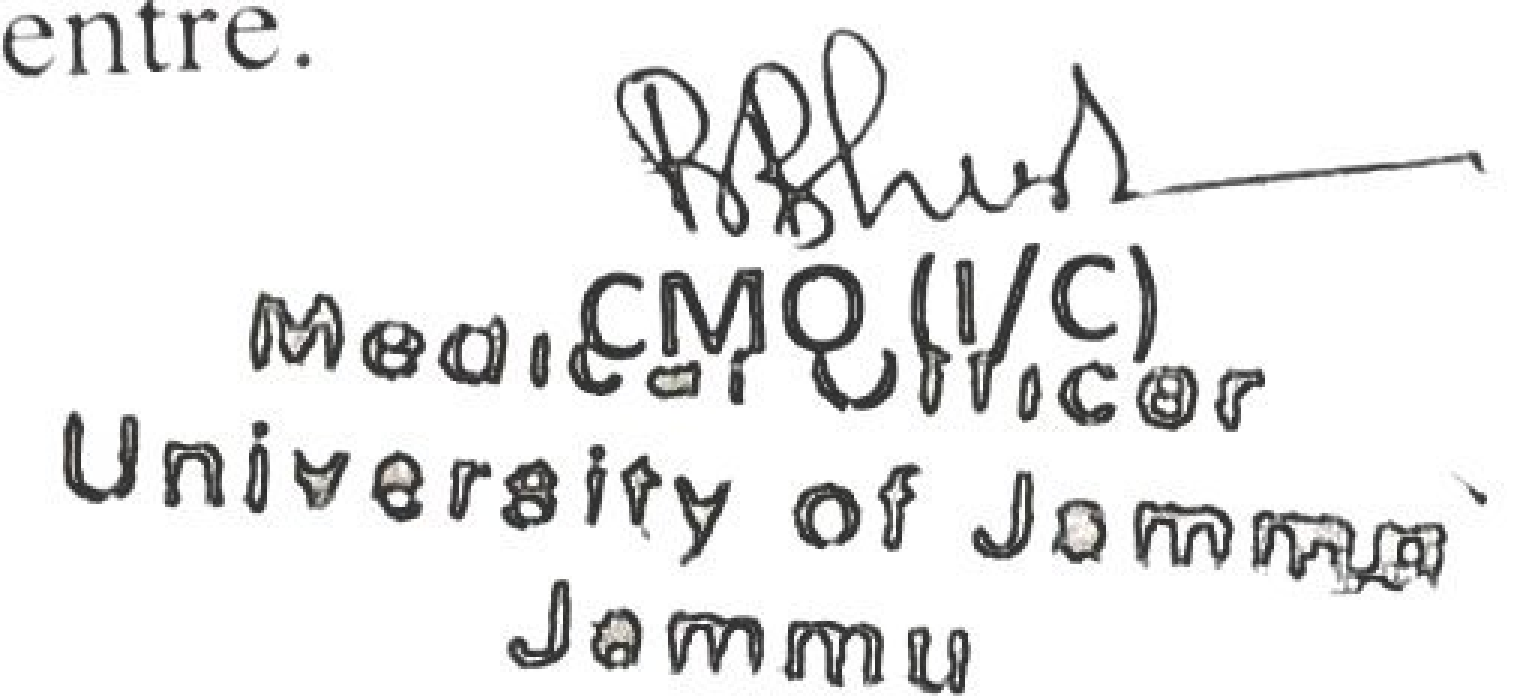 entre.
CMO (I/C)
Medical Officer
University of Jammu
Jammu